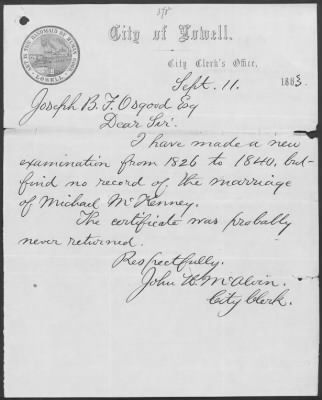 378
City of Lowell.
ART IS THE HANDMAID OF HUMAN GOOD.
LOWELL
City Clerk's Office,
Sept. 11. 1883
Joseph B. F. Osgood Esq
Dear Sir:
I have made a new
examination from 1826 to 1840, but
find no record of the marriage
of Michael McKenney.
The certificate was probably
never returned.
Respectfully.
John H. McAlvin.
City Clerk.